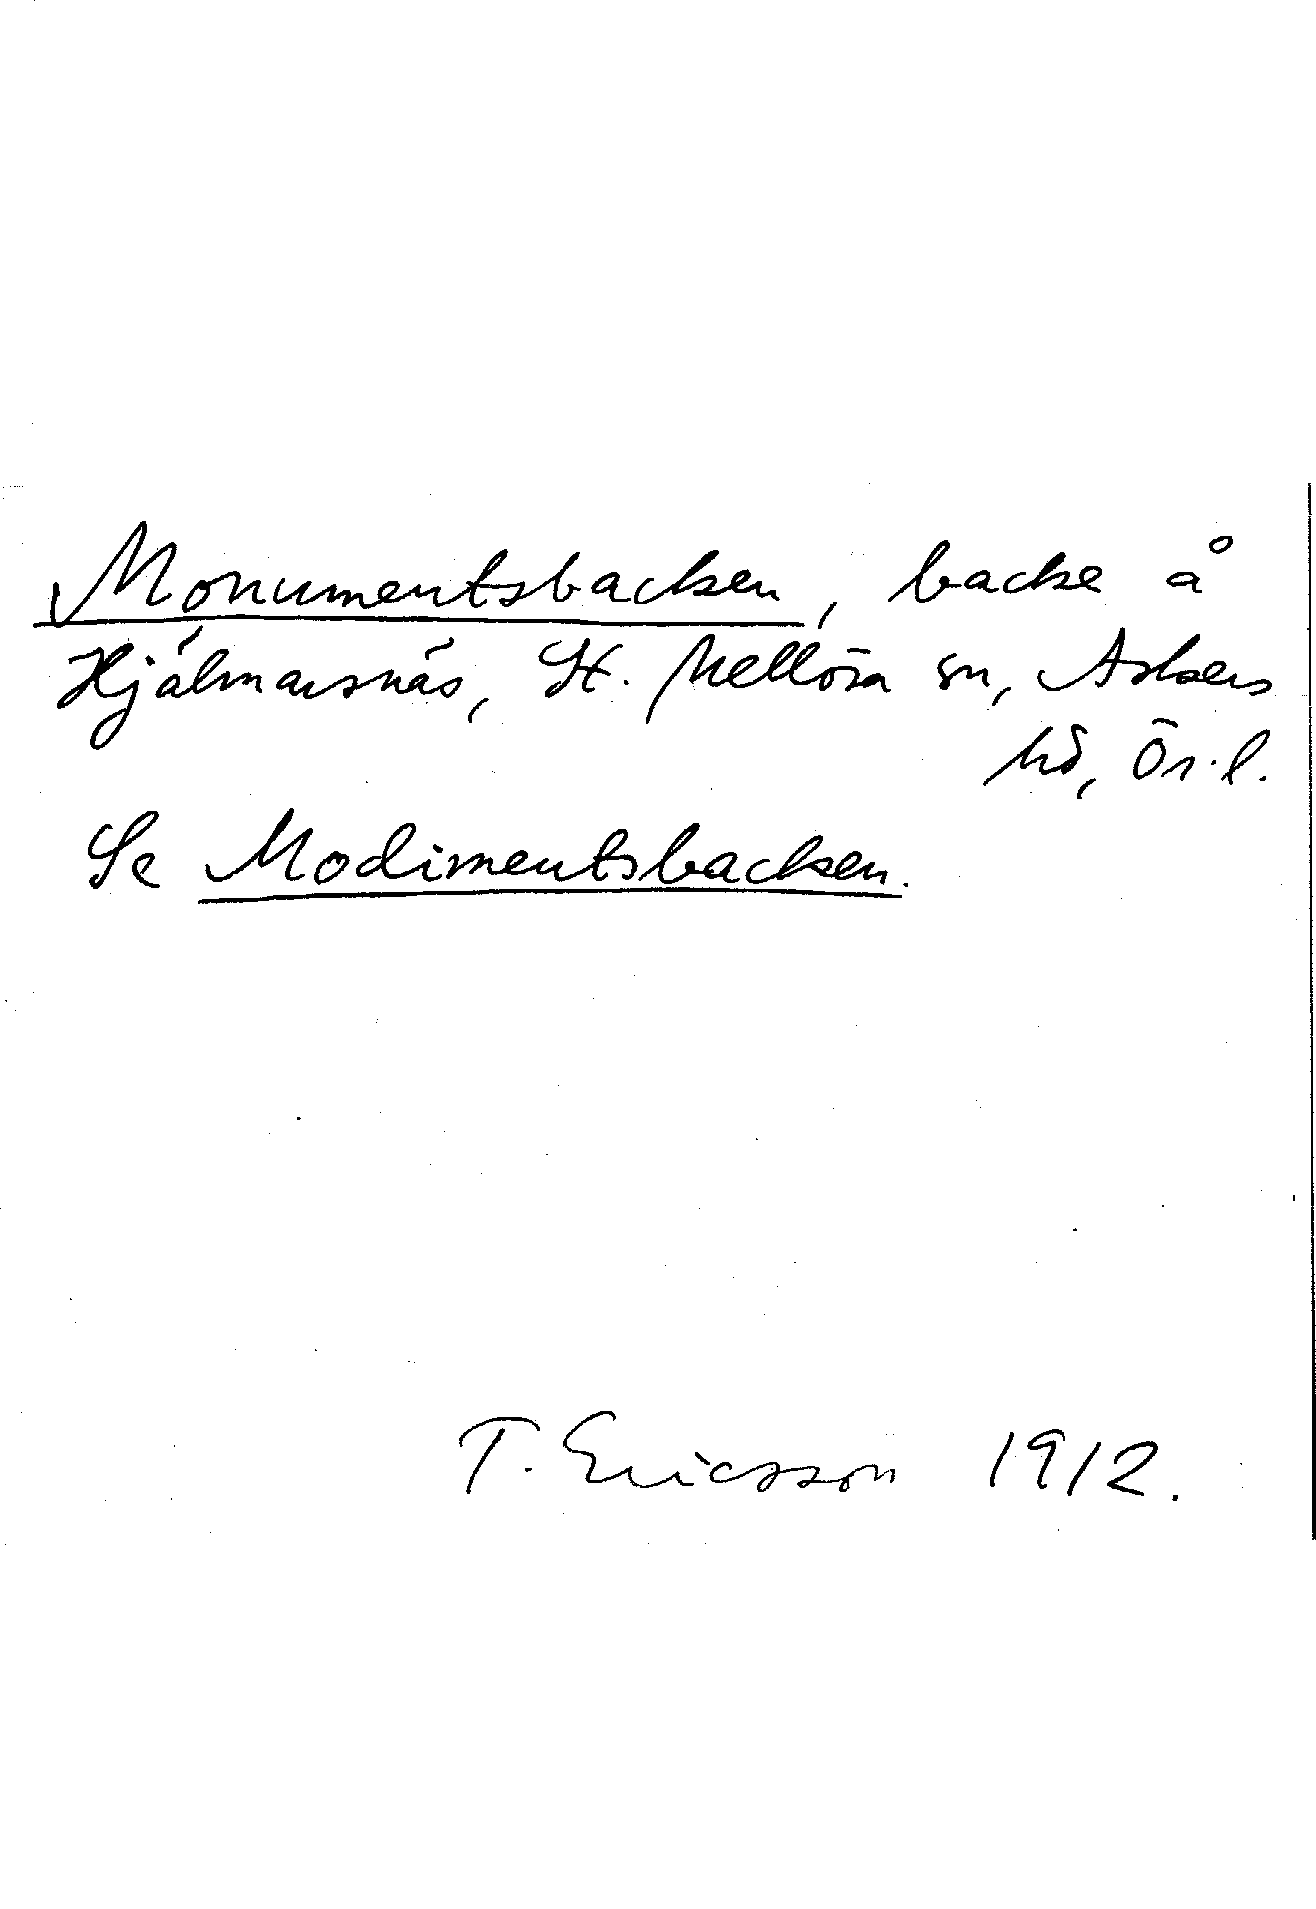 Monumentsbacken, backe å
Hjälmarsnäs, St. Mellösa sn, Askers
hd, Ör. l.
Se Modimentsbacken.
T. Ericsson 1912.